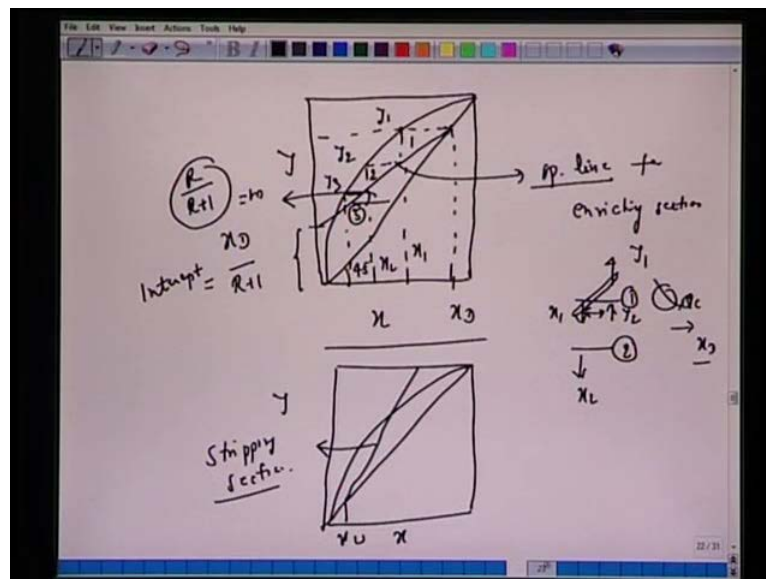 File Edit View Insert Actions Tools Help
B I
y
y1
1
y2
2
y3
3
R
R+1
= m
Intercept =
xD
R+1
45
x2
x1
x
xD
op. line for
enriching section
y1
x1
1
y2
2
x2
xD
y
Stripping
section.
x
22/31